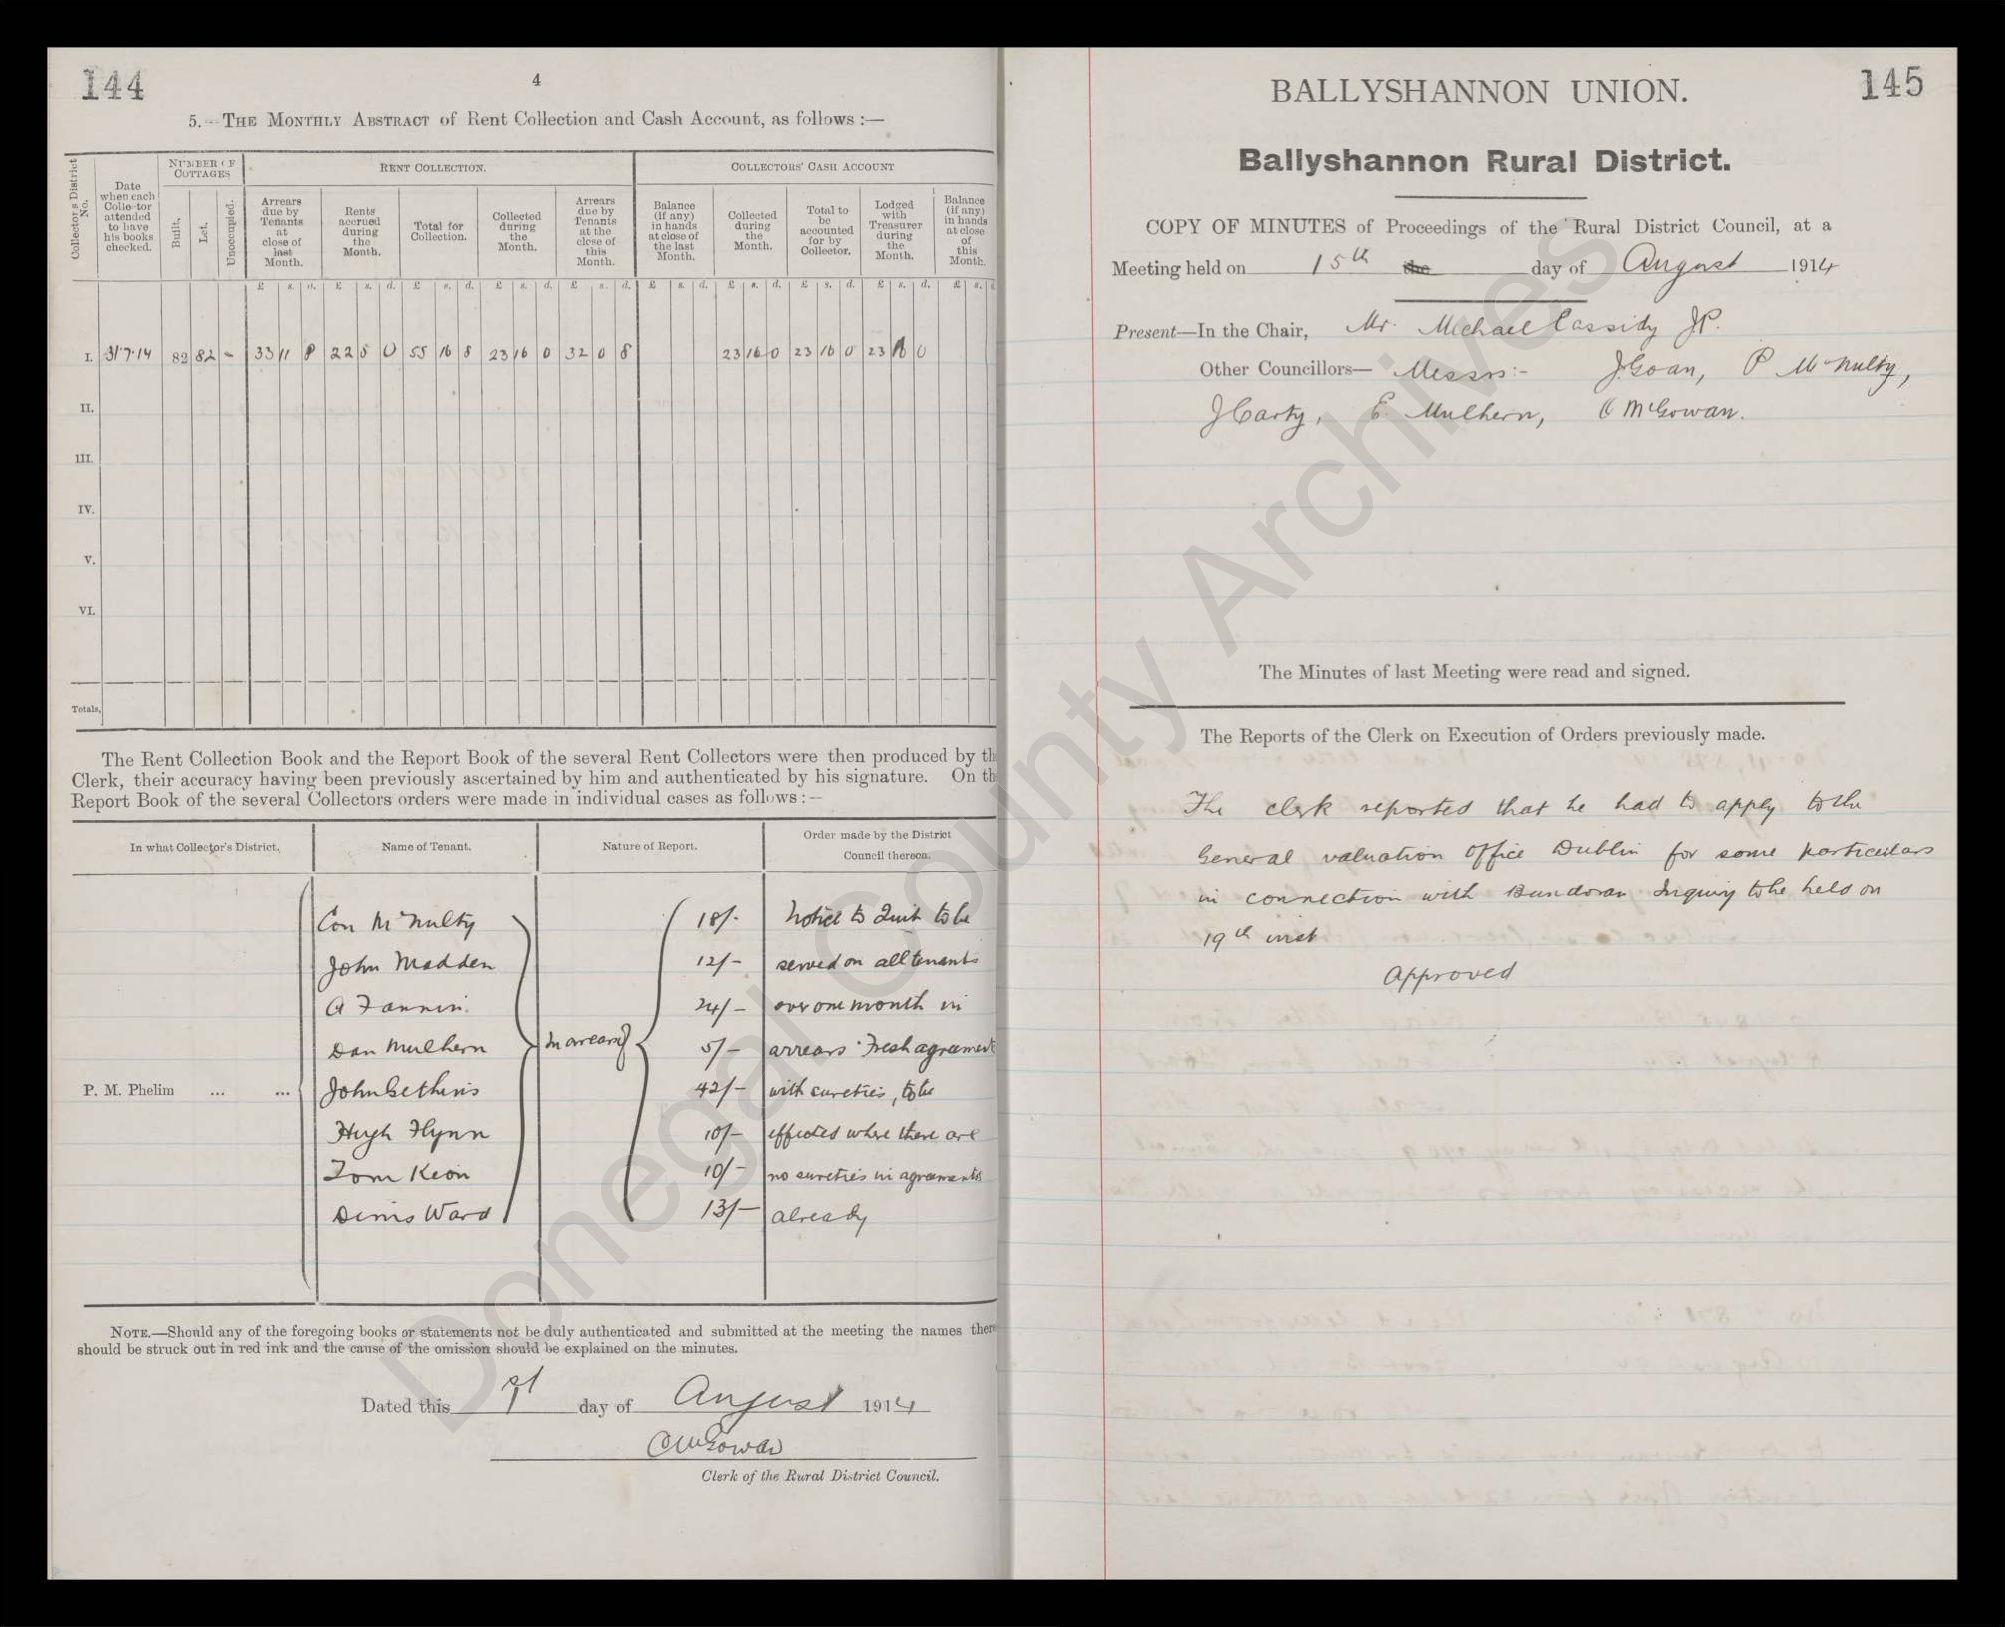 144
4
5.—THE MONTHLY ABSTRACT of Rent Collection and Cash Account, as follows :—
Collector's District No.
Date when each Collector attended to have his books checked.
NUMBER OF COTTAGES
Built.
Let.
Unoccupied.
RENT COLLECTION.
Arrears due by Tenants at close of last Month.
Rents accrued during the Month.
Total for Collection.
Collected during the Month.
Arrears due by Tenants at the close of this Month.
COLLECTORS' CASH ACCOUNT
Balance (if any) in hands at close of the last Month.
Collected during the Month.
Total to be accounted for by Collector.
Lodged with Treasurer during the Month.
Balance (if any) in hands at close of this Month.
£ s. d. £ s. d. £ s. d. £ s. d. £ s. d. £ s. d. £ s. d. £ s. d. £ s. d. £ s. d
I. 31·7·14 82 82 - 33 11 8 22 5 0 55 16 8 23 16 0 32 0 8 23 16 0 23 16 0 23 16 0
II.
III.
IV.
V.
VI.
Totals,
The Rent Collection Book and the Report Book of the several Rent Collectors were then produced by th
Clerk, their accuracy having been previously ascertained by him and authenticated by his signature. On th
Report Book of the several Collectors orders were made in individual cases as follows :—
In what Collector's District. Name of Tenant. Nature of Report. Order made by the District Council thereon.
Con McNulty 18/- Notice to Quit to be
John Madden 12/- served on all tenants
A Fannin. 24/- over one month in
Dan Mulhern In arears 5/- arrears. Fresh agreement
P. M. Phelim ... ... John Gethins 42/- with sureties, to be
Hugh Flynn 10/- effected where there are
Tom Keon 10/- no sureties in agreements
Denis Ward 13/- already
NOTE.—Should any of the foregoing books or statements not be duly authenticated and submitted at the meeting the names there
should be struck out in red ink and the cause of the omission should be explained on the minutes.
Dated this 1st day of August 1914
C McGowan
Clerk of the Rural District Council.
BALLYSHANNON UNION.
145
Ballyshannon Rural District.
COPY OF MINUTES of Proceedings of the Rural District Council, at a
Meeting held on 15th the day of August 1914
Present—In the Chair, Mr. Michael Cassidy JP.
Other Councillors— Messrs:- J Goan, P McNulty,
J Carty, E. Mulhern, C McGowan.
The Minutes of last Meeting were read and signed.
The Reports of the Clerk on Execution of Orders previously made.
The clerk reported that he had to apply to the
General valuation office Dublin for some particulars
in connection with Bundoran Inquiry to be held on
19th inst
Approved
Donegal County Archives